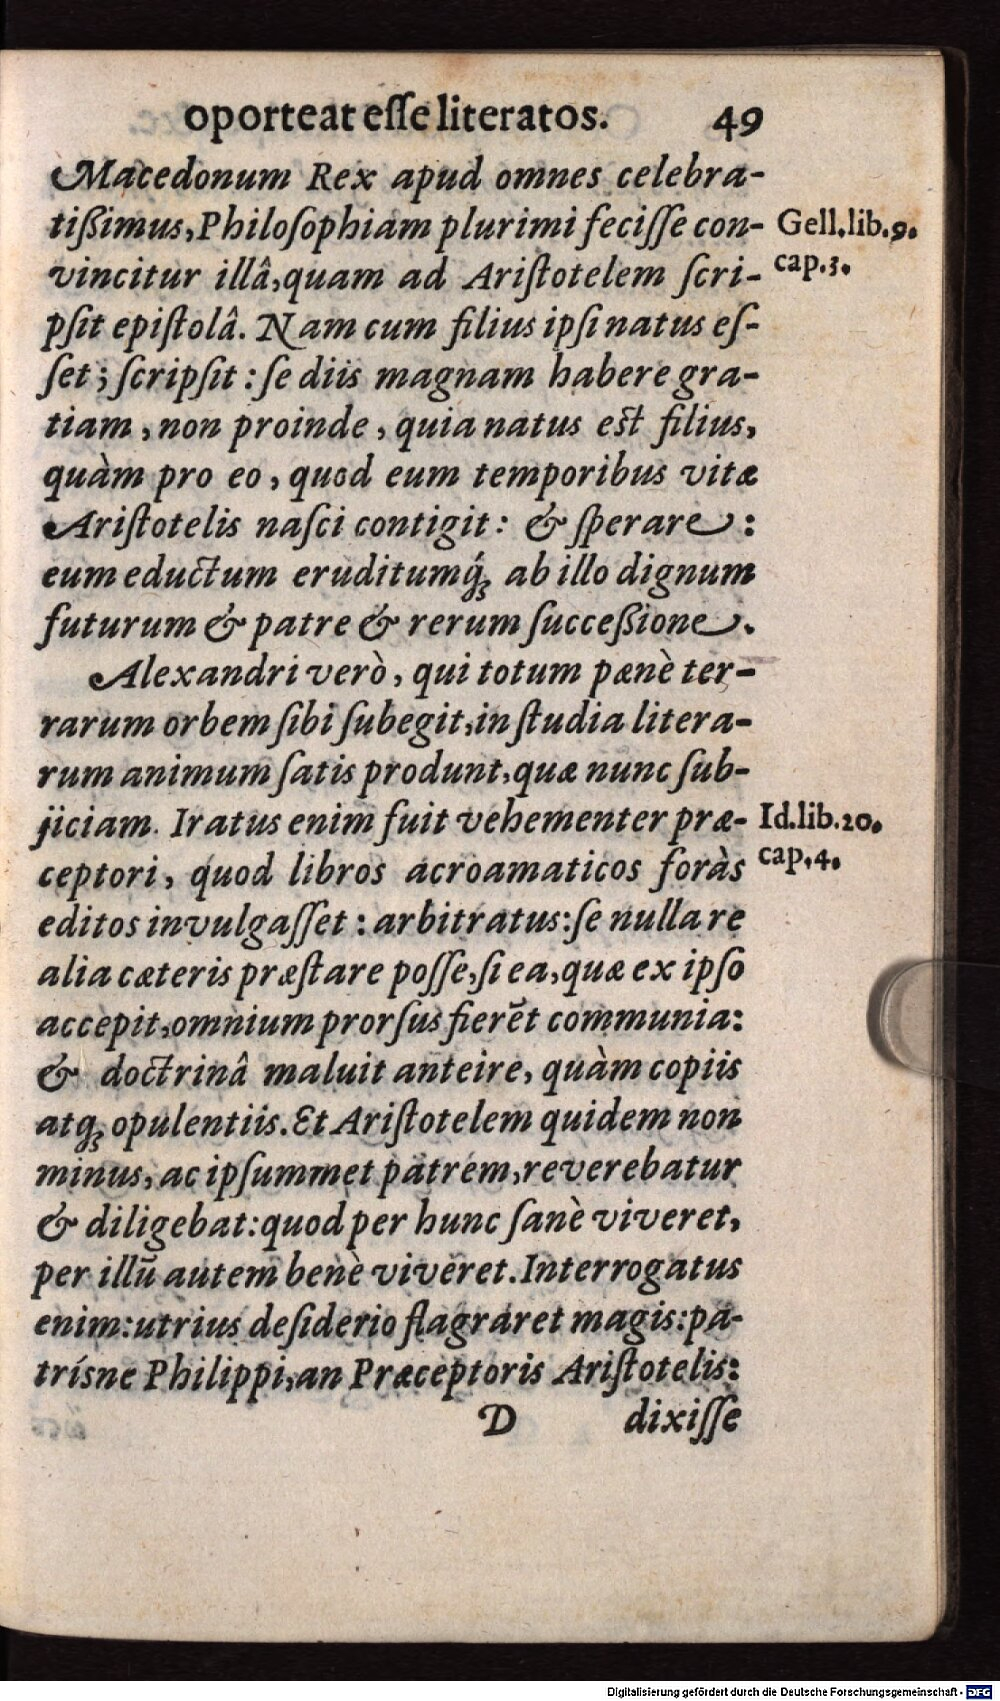 oporteat eſſe literatos. 49
Macedonum Rex apud omnes celebra-
tißimus, Philoſophiam plurimi feciſſe con-
Gell.lib.9.
vincitur illâ, quam ad Ariſtotelem ſcri-
cap.3.
pſit epiſtolâ. Nam cum filius ipſi natus eſ-
ſet; ſcripſit: ſe diis magnam habere gra-
tiam, non proinde, quia natus est filius,
quàm pro eo, quod eum temporibus vitæ
Ariſtotelis naſci contigit: & ſperare:
eum eductum eruditumq́ꝫ ab illo dignum
futurum & patre & rerum ſucceßione.
Alexandri verò, qui totum pænè ter-
rarum orbem ſibi ſubegit, in ſtudia litera-
rum animum ſatis produnt, quæ nunc ſub-
jiciam. Iratus enim fuit vehementer præ-
Id.lib.20.
ceptori, quod libros acroamaticos foràs
cap.4.
editos invulgaſſet: arbitratus: ſe nulla re
alia cæteris præſtare poſſe, ſi ea, quæ ex ipſo
accepit, omnium prorſus fierēt communia:
& doctrinâ maluit anteire, quàm copiis
atqꝫ opulentiis. Et Ariſtotelem quidem non
minus, ac ipſummet patrem, reverebatur
& diligebat: quod per hunc ſanè viveret,
per illū autem benè viveret. Interrogatus
enim: utrius deſiderio flagraret magis: pa-
trísne Philippi, an Præceptoris Ariſtotelis:
D dixiſſe
Digitalisierung gefördert durch die Deutsche Forschungsgemeinschaft - DFG